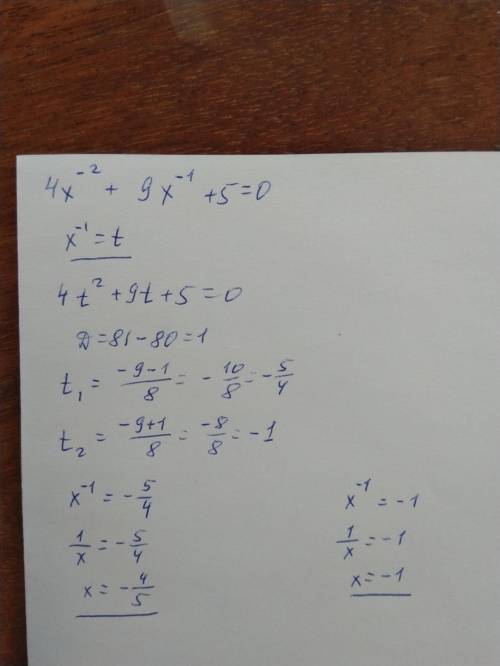 4x⁻² + 9x⁻¹ + 5 = 0
x⁻¹ = t
4t² + 9t + 5 = 0
D = 81 - 80 = 1
t₁ = (-9-1)/8 = -10/8 = -5/4
t₂ = (-9+1)/8 = -8/8 = -1
x⁻¹ = -5/4
1/x = -5/4
x = -4/5
x⁻¹ = -1
1/x = -1
x = -1